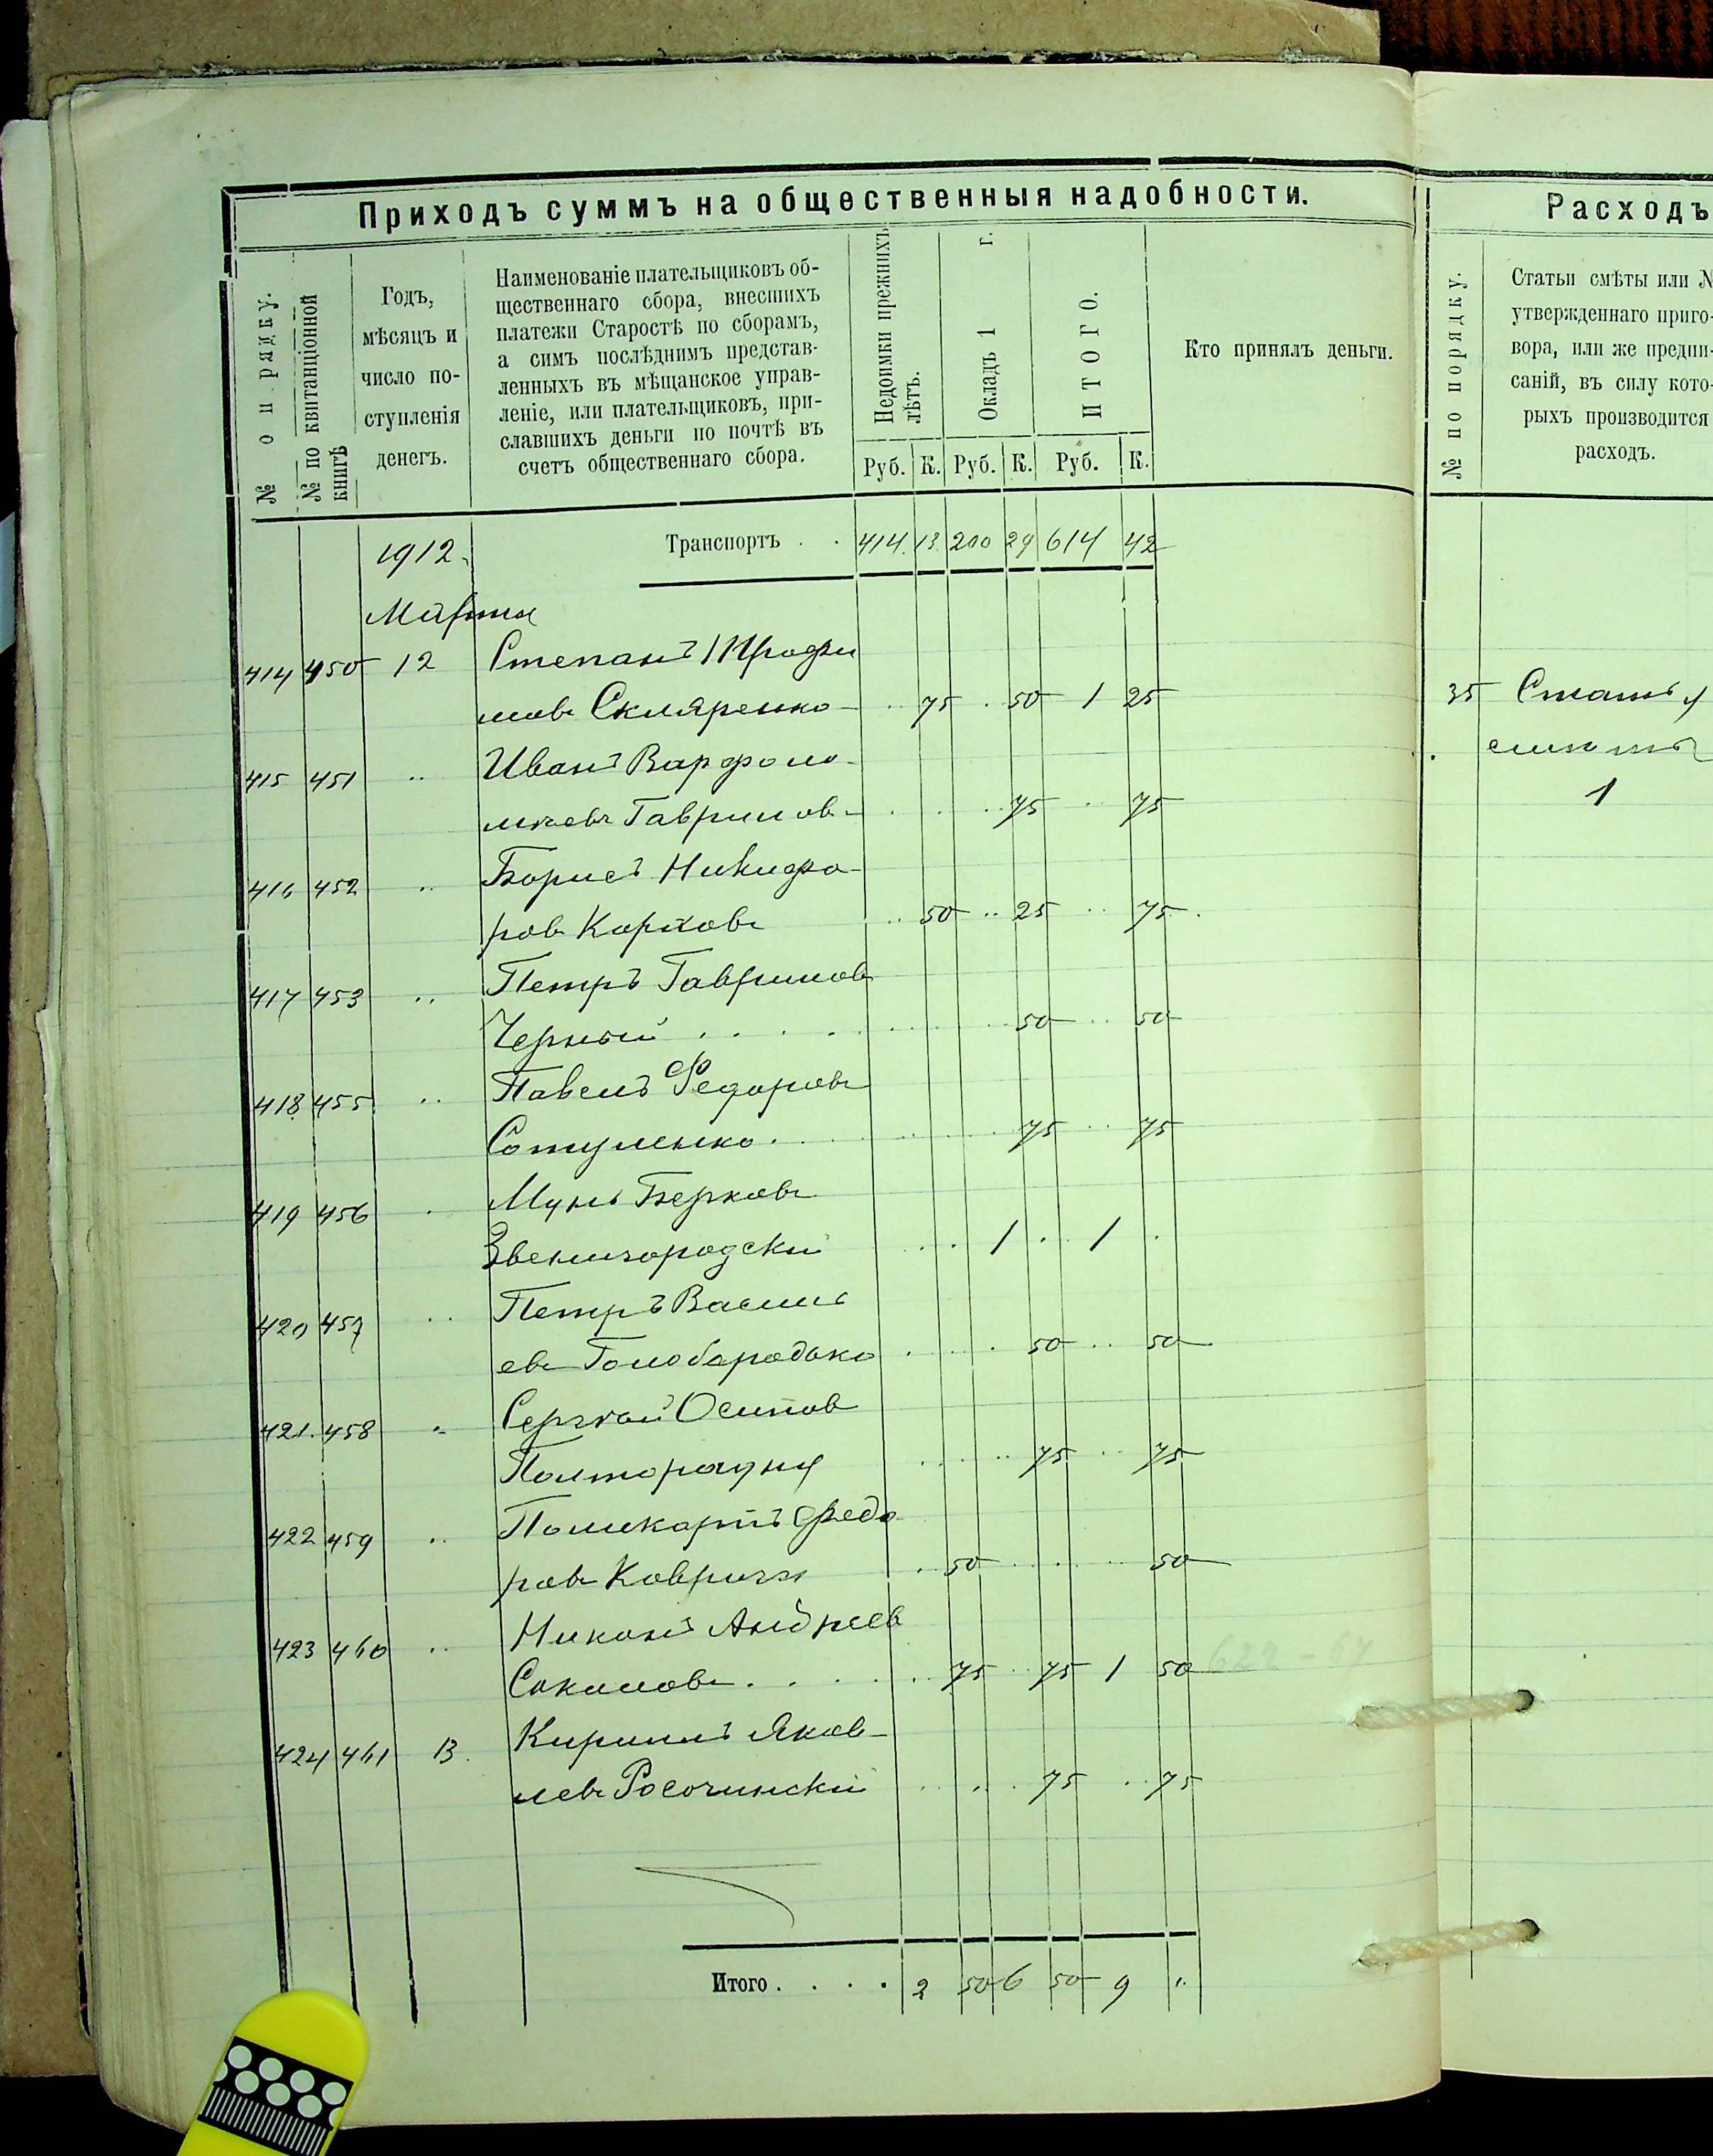 Приходъ суммъ на общественныя надобности.
№ по рядку.
№ по квитанціонной книгѣ
Годъ,
мѣсяцъ и
число по-
ступленія
денегъ.
Наименованіе плательщиковъ об-
щественнаго сбора, внесшихъ
платежи Старостѣ по сборамъ,
а симъ послѣднимъ представ-
ленныхъ въ мѣщанское управ-
леніе, или плательщиковъ, при-
славшихъ деньги по почтѣ въ
счетъ общественнаго сбора.
Недоимки прежнихъ лѣтъ.
Окладъ 1 г.
ИТОГО.
Кто принялъ деньги.
Руб. К. Руб. К. Руб. К.
1912. Транспортъ . . 414. 13. 200 29 614 42
Марта
414 450 12 Степанъ Трофи
мовъ Скляренко 75 . 50 1 25
415 451 .. Иванъ Варфоло-
мѣевъ Гаврилов 75 .. 75
416 452 .. Борисъ Никифо-
ров Карповъ .. 50 .. 25 .. 75
417 453 .. Петръ Гаврилов
Черный . . . . 50 .. 50
418 455 .. Павелъ Федоровъ
Сотуленко . . 75 .. 75
419 456 . Берковъ
Звенигородскій . . 1 . 1 .
420 457 .. Петръ Василь
евъ Голобородько . . . 50 .. 50
421. 458 .. Сергѣй Осипов
. . . 75 .. 75
422 459 .. Поликарпъ Федо
ровъ Коврига . 50 . . . 50
423 460 .. Никонъ Андреев
Соколовъ . . . 75 .. 75 1 50 622-67
424 461 13. Кирилъ Яков-
левъ Росочинскій . . 75 . . 75
Итого . . . . 2 50 6 50 9 ..
Расходъ
№ по порядку.
Статьи смѣты или №
утвержденнаго приго-
вора, или же предпи-
саній, въ силу кото-
рыхъ производится
расходъ.
35 Статья
смѣты
1